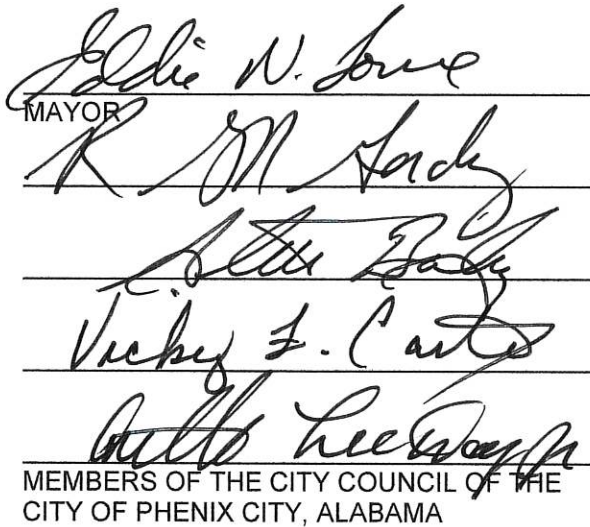 Eddie N. Lowe
MAYOR
R M Gordy
Steve Bailey
Vickey F. Carter
Lee Day Jr
MEMBERS OF THE CITY COUNCIL OF THE
CITY OF PHENIX CITY, ALABAMA